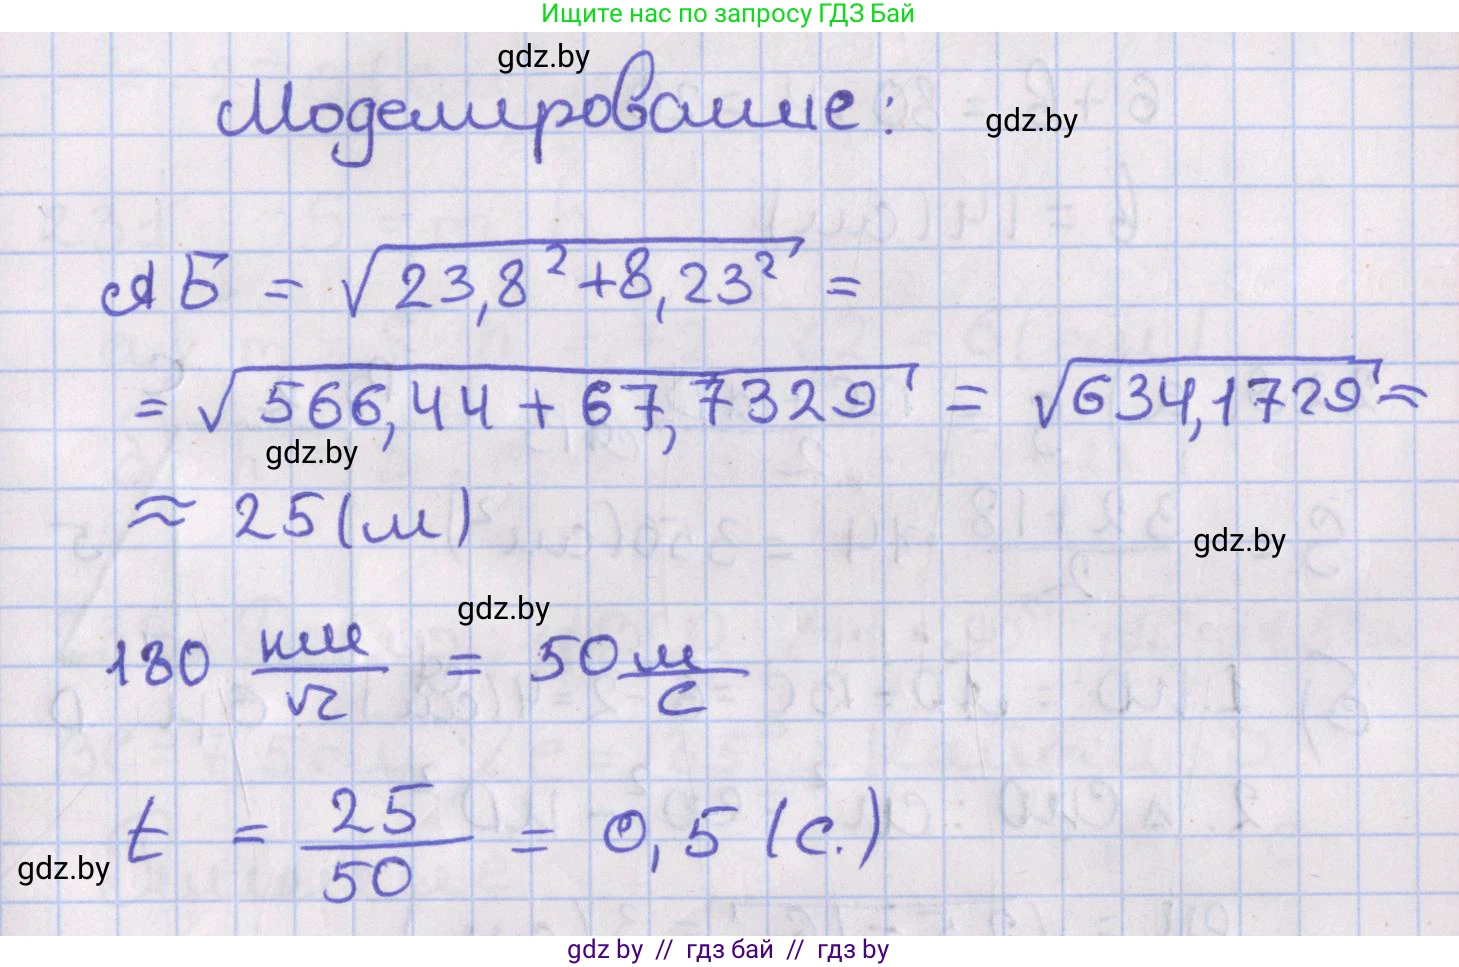 Ищите нас по запросу ГДЗ Бай
gdz.by
Моделирование:
gdz.by
АБ = √23,8² + 8,23² =
= √566,44 + 67,7329 = √634,1729 ≈
gdz.by
≈ 25 (м)
gdz.by
gdz.by
180 км/ч = 50 м/с
t = 25/50 = 0,5 (с.)
gdz.by
gdz by // гдз бай // гдз by